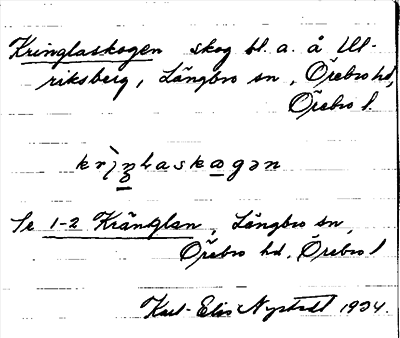 Kringlaskogen skog bl. a. å Ul-
riksberg, Längbro sn, Örebro hd,
Örebro l.
Se 1-2 Kränglan, Längbro sn,
Örebro hd. Örebro l
Karl-Elis Nystedt 1934.